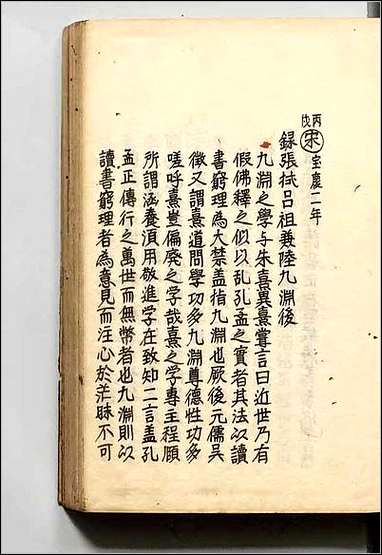 丙戌 宋 宝慶二年
錄張栻呂祖義陸九淵後
九淵之學与朱熹異熹嘗言曰近世乃有
假佛釋之似以乱孔孟之實者其法以讀
書窮理為大禁盖指九淵也厥後元儒吳
徵又謂熹道問學功多九淵尊德性功多
嗟呼熹豈偏廢之学哉熹之学專主程頤
所謂涵養湏用敬進学在致知二言盖孔
孟正傳行之萬世而無幣者也九淵則以
讀書窮理者為意見而注心於茫昧不可